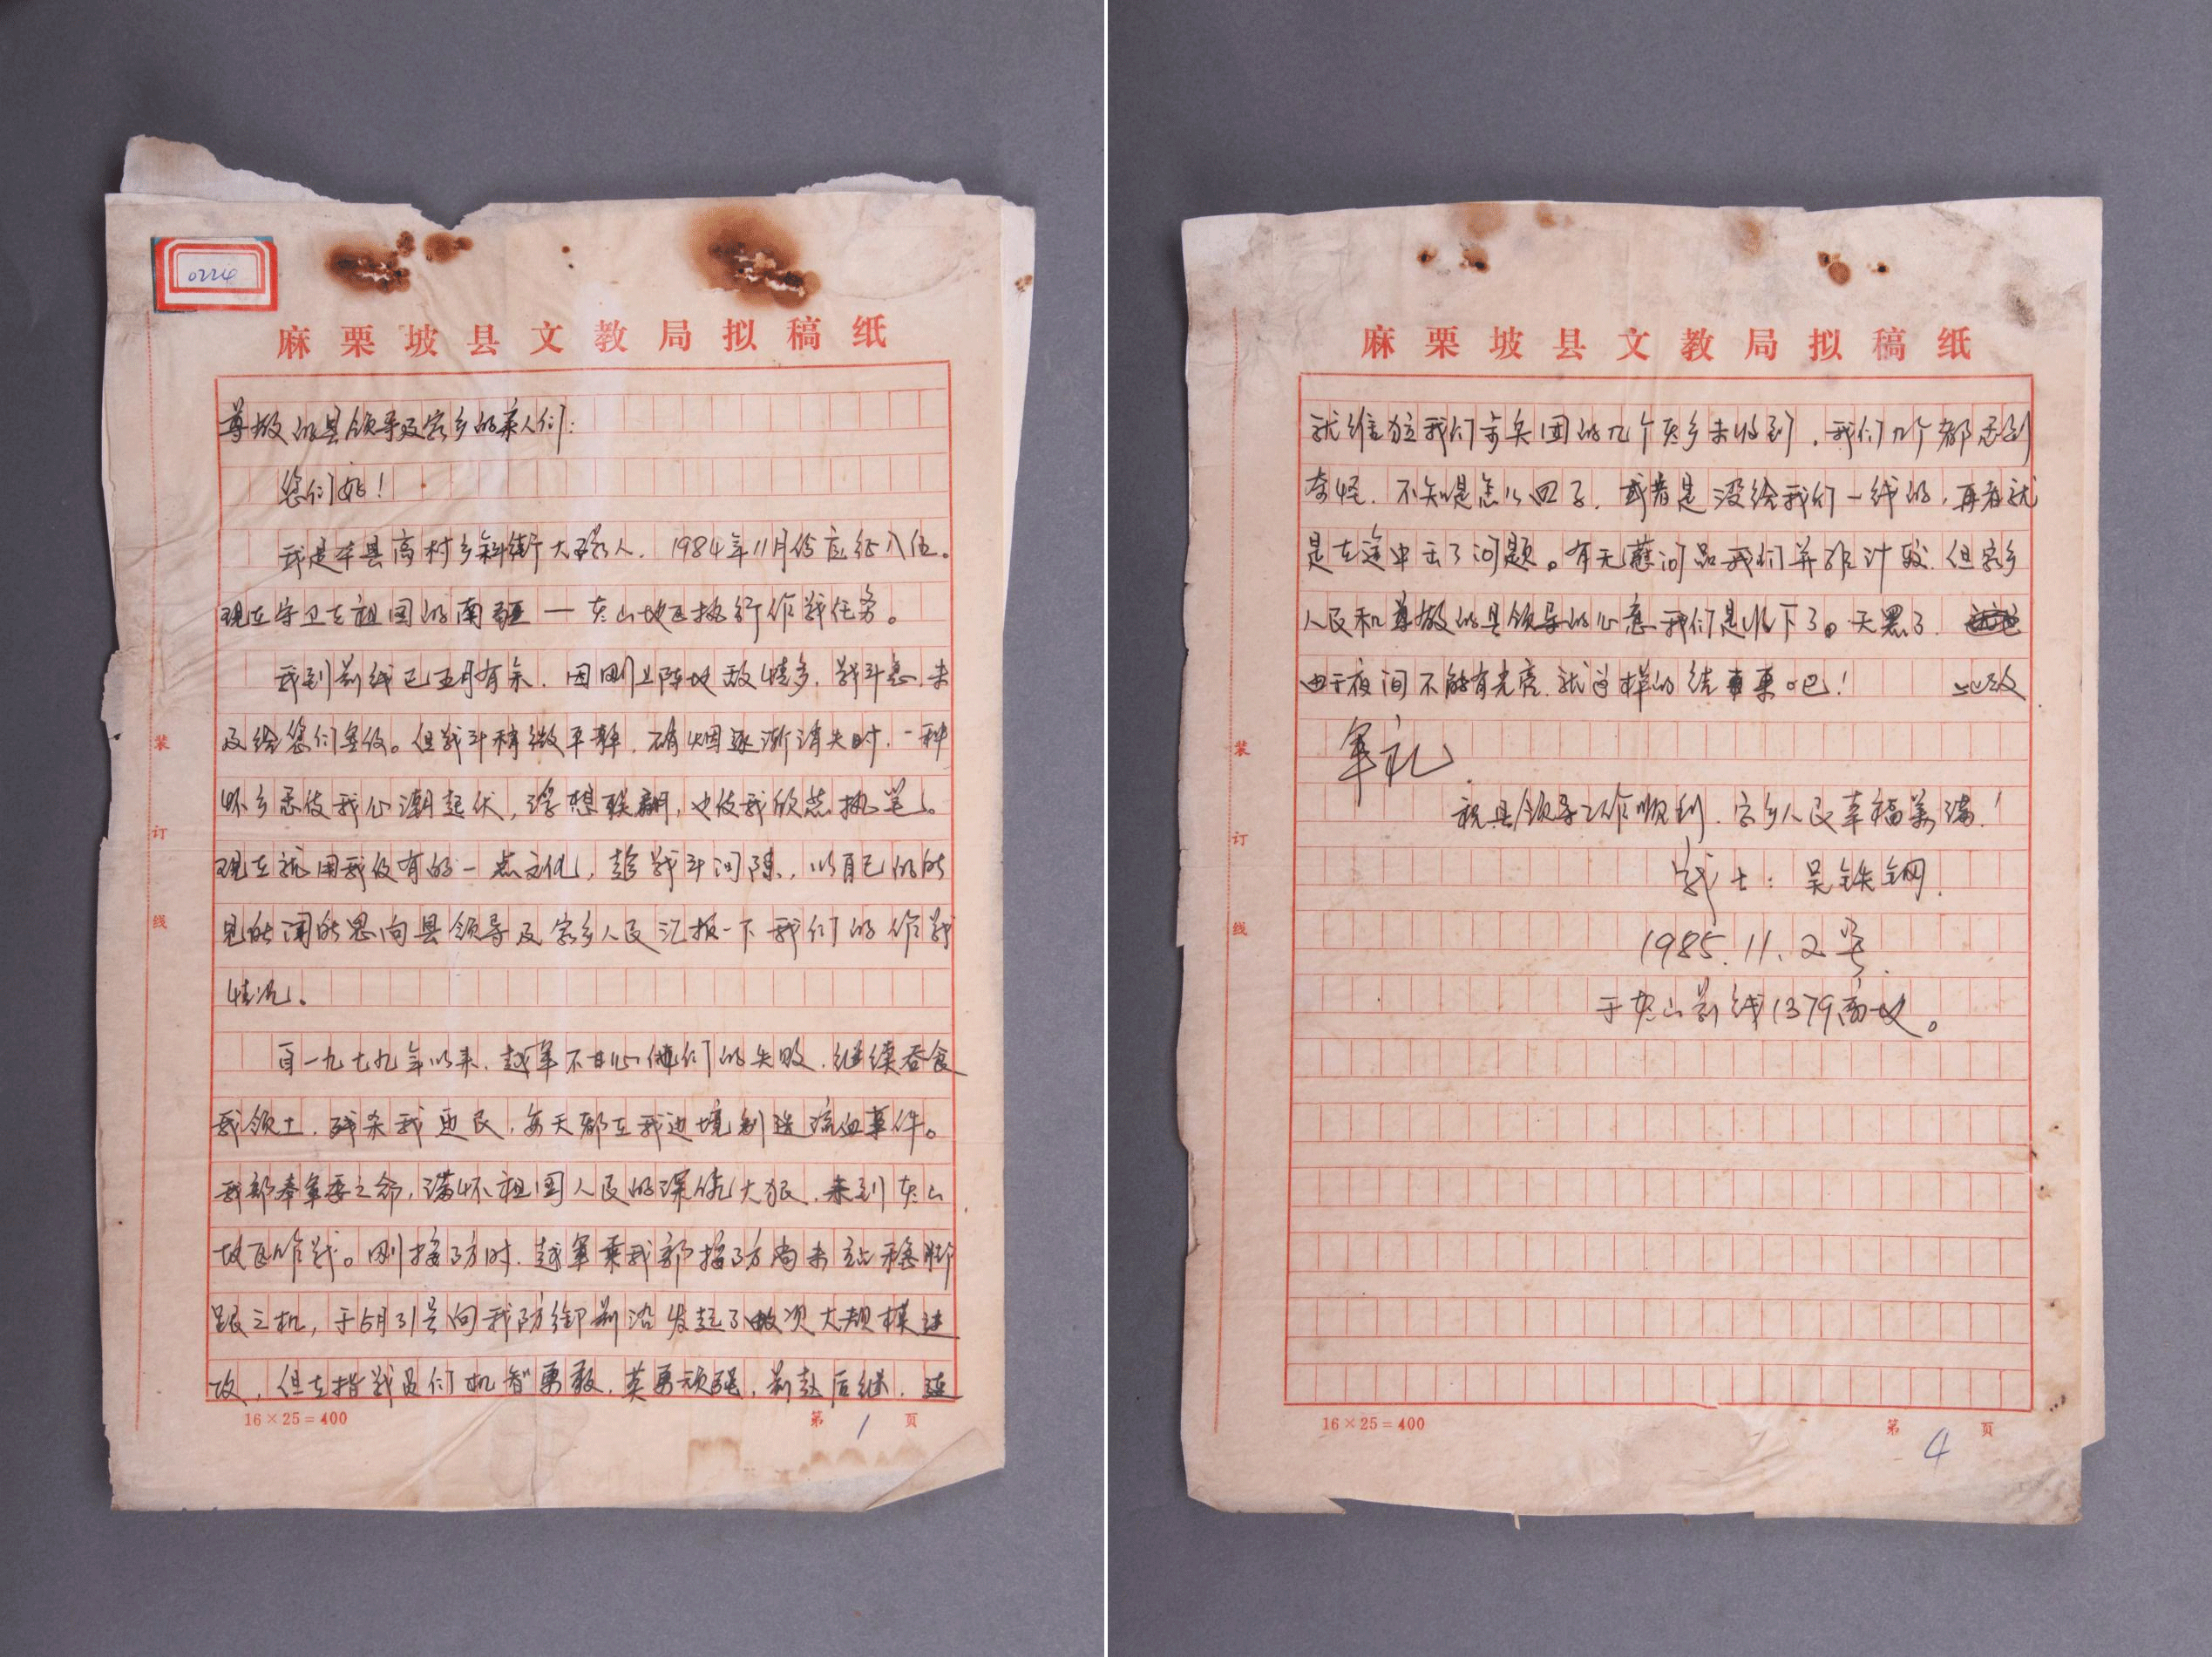 0224
麻栗坡县文教局拟稿纸
尊敬的县领导及家乡的亲人们:
您们好!
我是本县高村乡斜街大路人. 1984年11月份应征入伍。
现在守卫在祖国的南疆——老山地区执行作战任务。
我到前线已五月有余. 因刚上阵地敌情多. 战斗急. 未
及给您们写信。但战斗稍微平静. 硝烟逐渐消失时. 一种
怀乡念使我心潮起伏, 浮想联翩, 也使我欣然执笔。
现在就用我仅有的一点文化, 趁战斗间隙, 以自己的所
见所闻所思向县领导及家乡人民汇报一下我们的作战
情况。
自一九七九年以来. 越军不甘心他们的失败. 继续吞食
我领土. 残杀我边民, 每天都在我边境制造流血事件。
我部奉军委之命, 满怀祖国人民的深仇大恨. 来到老山
地区作战。刚接防时. 越军乘我部接防尚未站稳脚
跟之机, 于5月31号向我防御前沿发起了数次大规模进
攻, 但在指战员们机智勇敢. 英勇顽强, 前赴后继. 连
装
订
线
16×25=400
第 1 页
麻栗坡县文教局拟稿纸
就唯独我们步兵团的几个老乡未收到. 我们几个都感到
奇怪. 不知是怎么回了. 或者是没给我们一线的, 再者就
是在途中出了问题。有无慰问品我们并非计较. 但家乡
人民和尊敬的县领导的心意我们是收下了。天黑了.
由于夜间不能有光亮. 就这样的结束吧! 此致
军礼
祝县领导工作顺利. 家乡人民幸福美满!
战士: 吴铁钢.
1985.11.2号.
于老山前线1379高地。
装
订
线
16×25=400
第 4 页